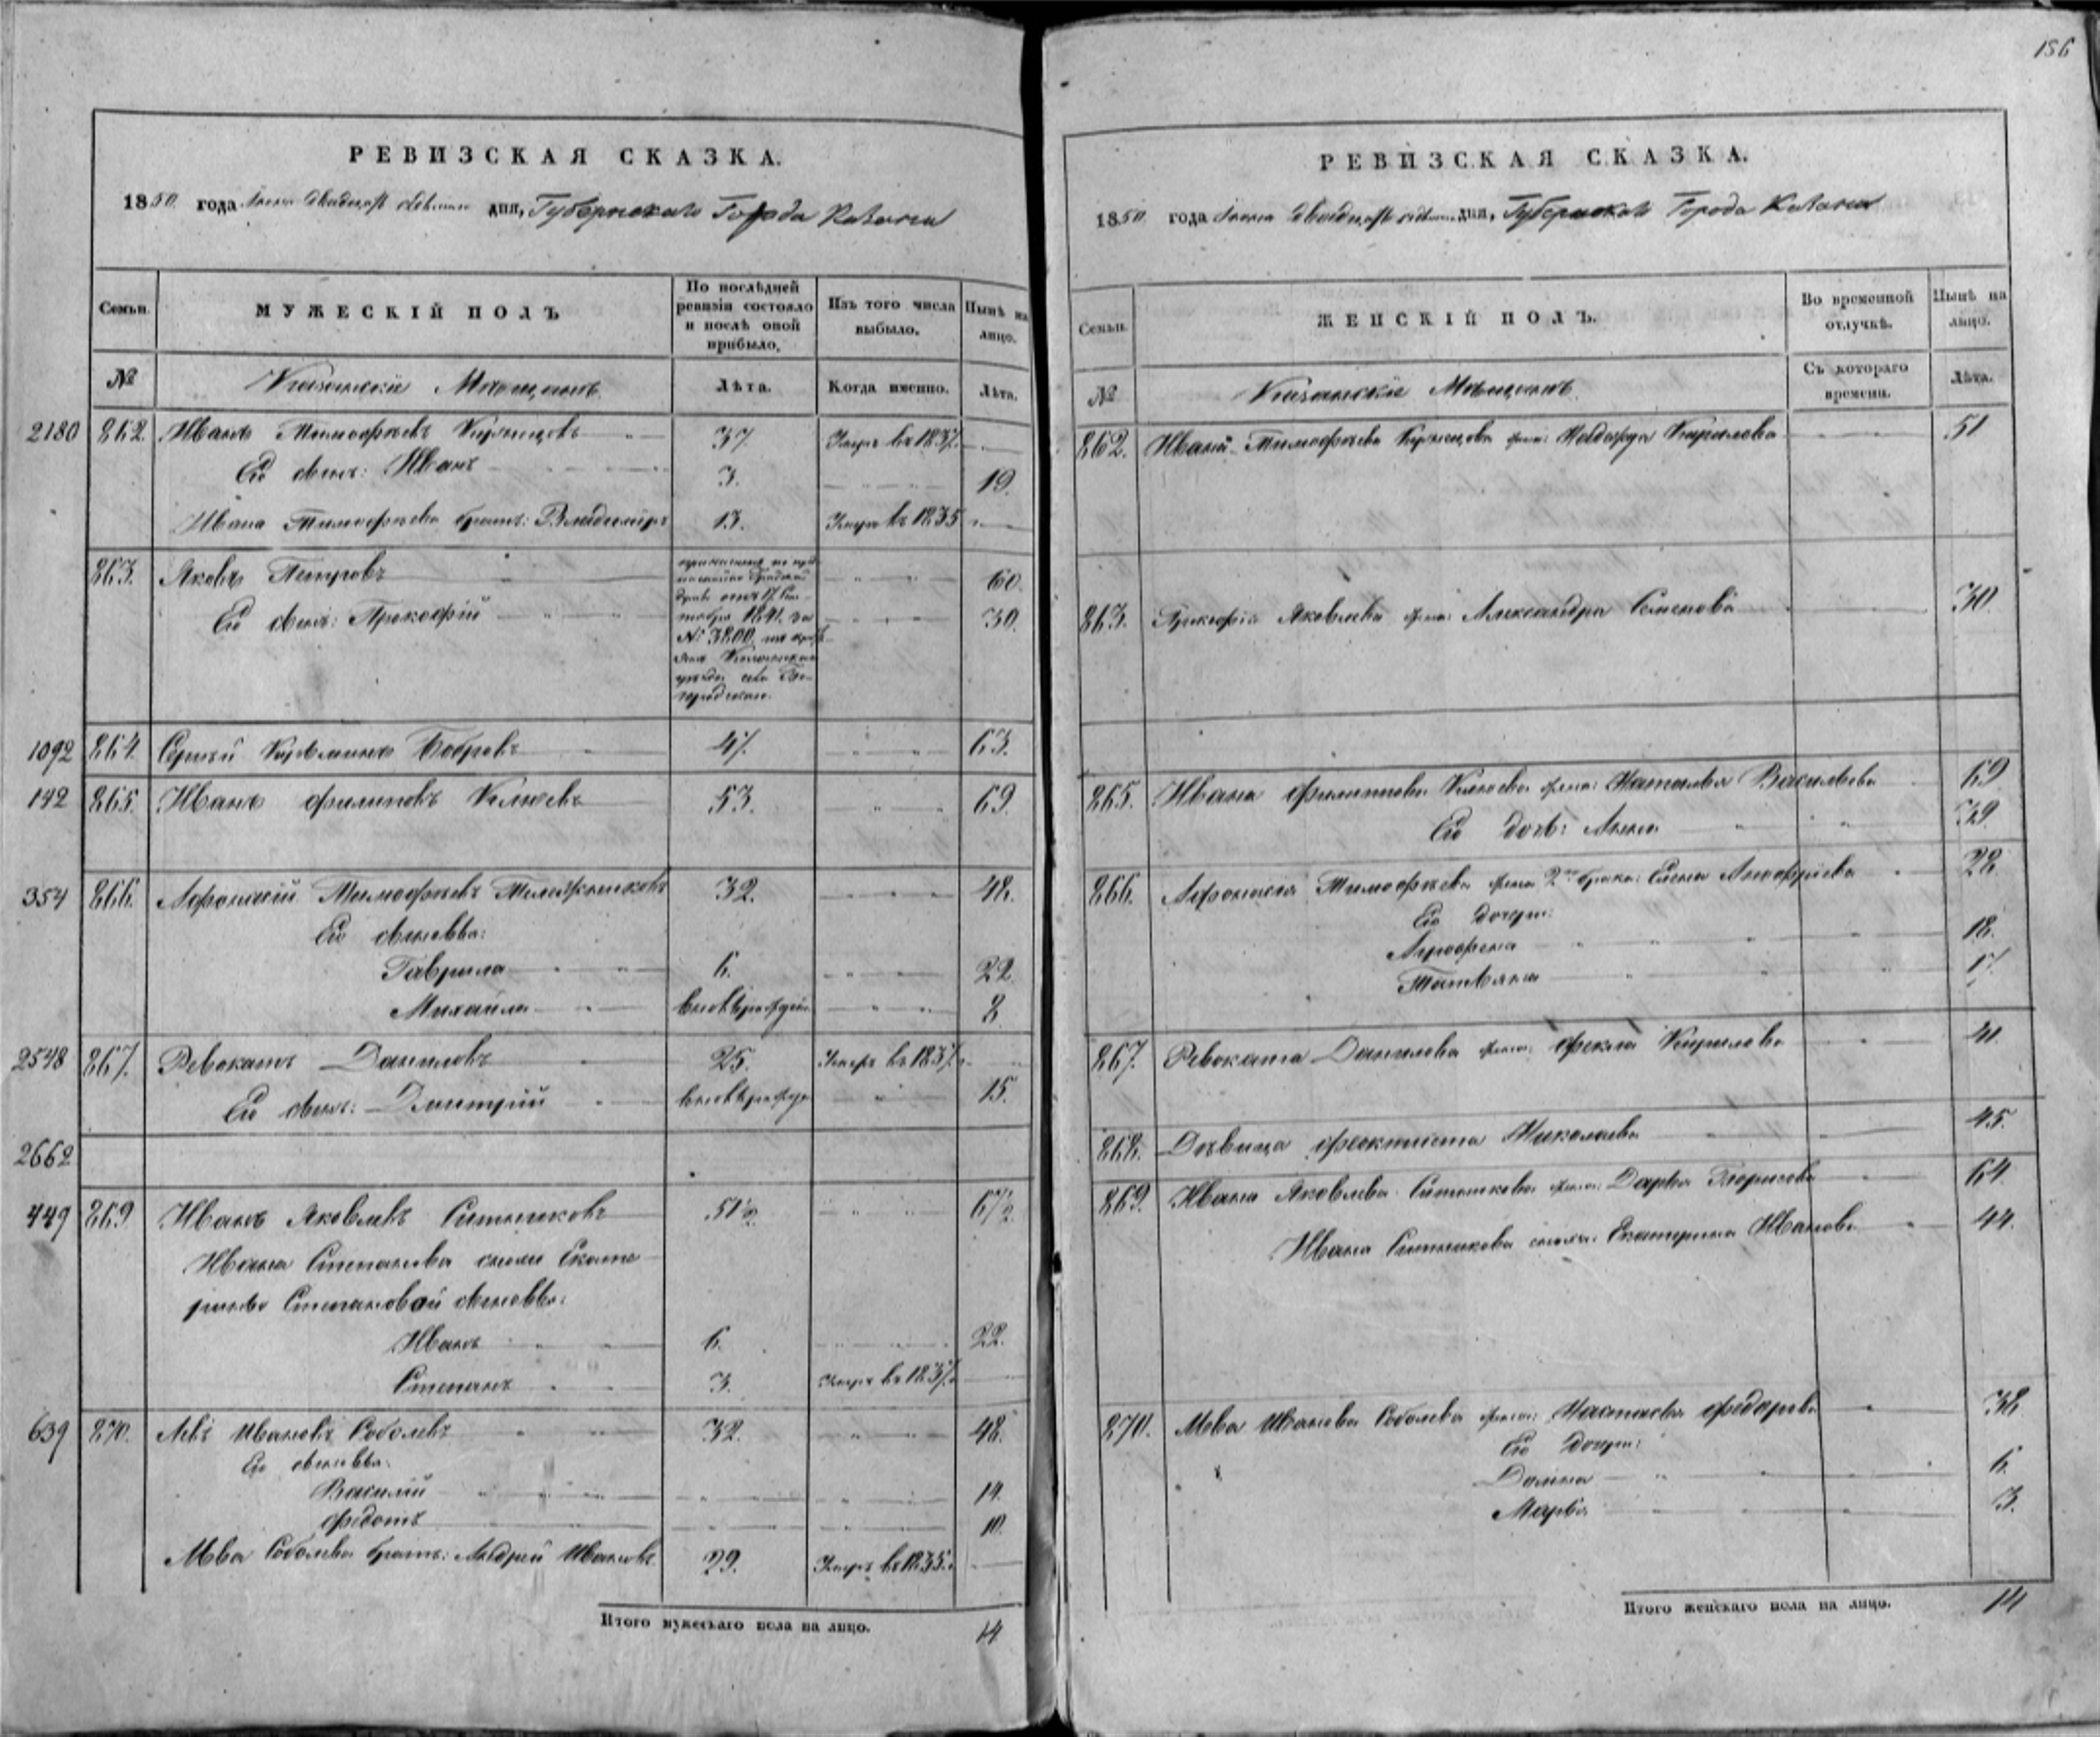 РЕВИЗСКАЯ СКАЗКА.
1850 года дня, Губернскаго Города Казани
Семьи.
МУЖЕСКІЙ ПОЛЪ
По послѣдней ревизіи состояло и послѣ оной прибыло.
Изъ того числа выбыло.
Нынѣ на лицо.
№
Казанскіе Мѣщане
Лѣта.
Когда именно.
Лѣта.
2180 862. Иванъ Тимофѣевъ Кузнецовъ 37 Умеръ въ 1837.
Его сынъ: Иванъ 3. 19.
Ивана Тимофѣева братъ: Владимиръ 13. Умеръ въ 1835
863. Яковъ Петровъ 60.
Его сынъ: Прокофій 30.
№ 3800
1092 864. Сергѣй Бобровъ 47. 63.
142 865. Иванъ Филиповъ 53. 69.
354 866. Афонасій Тимофѣевъ 32. 48.
Его сыновья:
Гаврила 6. 22
Михайла 8
2548 867. Ревокатъ Даниловъ 25. Умеръ въ 1837.
Его сынъ: Дмитрій 15.
2662
449 869 Иванъ Яковлевъ Ситниковъ 51½. 67½.
Ивана Степанова Екате
рины Степановой сыновья:
Иванъ 6. 22.
Степанъ 3. Умеръ въ 1837.
639 870. Левъ Ивановъ Соболевъ 32. 48.
Его сыновья.
Василій 14.
Федотъ 10.
Льва Соболева братъ: Андрей Ивановъ 29. Умеръ въ 1835.
Итого мужескаго пола на лицо. 14
156
РЕВИЗСКАЯ СКАЗКА.
1850 года дня, Губернскаго Города Казани
Семьи.
ЖЕНСКІЙ ПОЛЪ.
Во временной отлучкѣ.
Нынѣ на лицо.
№
Казанскіе Мѣщане
Съ котораго времени.
Лѣта.
862. Ивана Тимофѣева Кузнецова жена: Надежда Кирилова 51
863. Прокофія Яковлева жена: Александра Семенова 30.
865. Ивана Филиппова жена: Наталья Васильева 69
Его дочь: Анна 39
866. Афонасья Тимофѣева жена 2го брака: Елена Ануфріева 28.
Его дочери:
18.
Татьяна 17.
867. Ревоката Данилова жена: Фекла Кирилова 41.
868. Дѣвица Феоктиста Николаева 45.
869. Ивана Яковлева Ситникова жена: Дарья 64.
Ивана Ситникова Екатерина Иванова 44.
870. Льва Иванова Соболева жена: Настасья Федорова 38
Его дочери:
Домна 6.
Марья 3.
Итого женскаго пола на лицо. 14